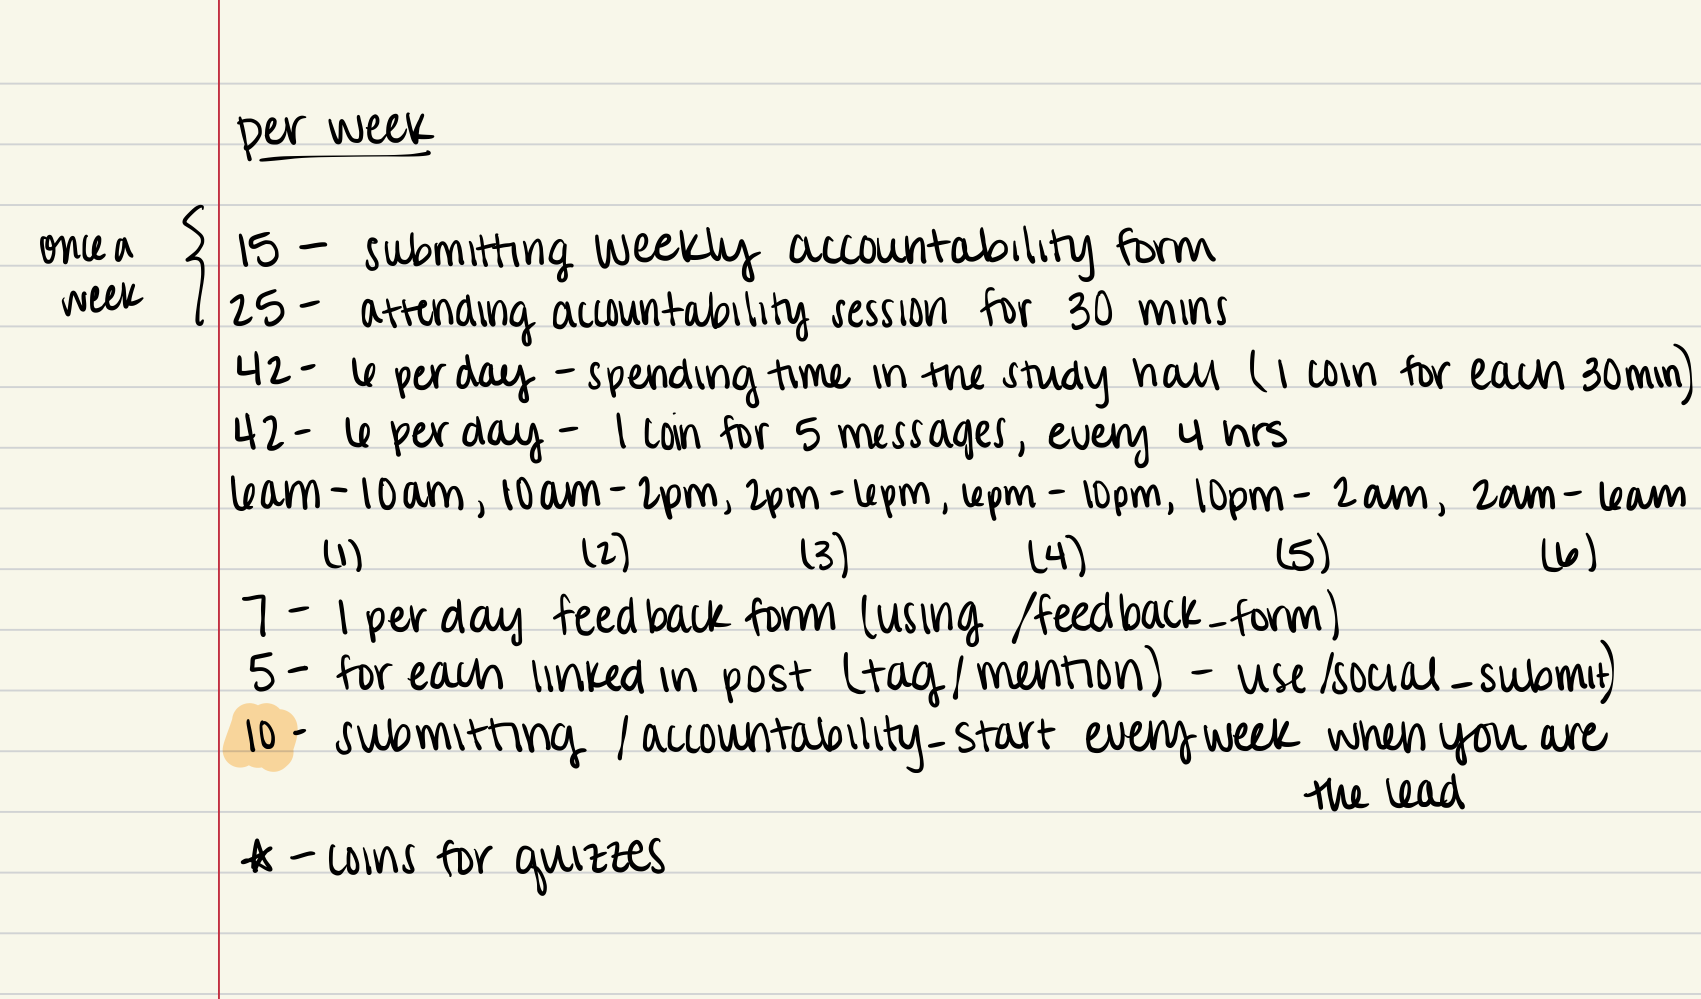 per week
once a
week
15 - submitting weekly accountability form
25 - attending accountability session for 30 mins
42 - 6 per day - spending time in the study hall (1 coin for each 30min)
42 - 6 per day - 1 coin for 5 messages, every 4 hrs
6am - 10am, 10am - 2pm, 2pm - 6pm, 6pm - 10pm, 10pm - 2am, 2am - 6am
(1) (2) (3) (4) (5) (6)
7 - 1 per day feedback form (using /feedback_form)
5 - for each linked in post (tag/mention) - use /social_submit)
10 - submitting /accountability_start every week when you are
the lead
* - coins for quizzes